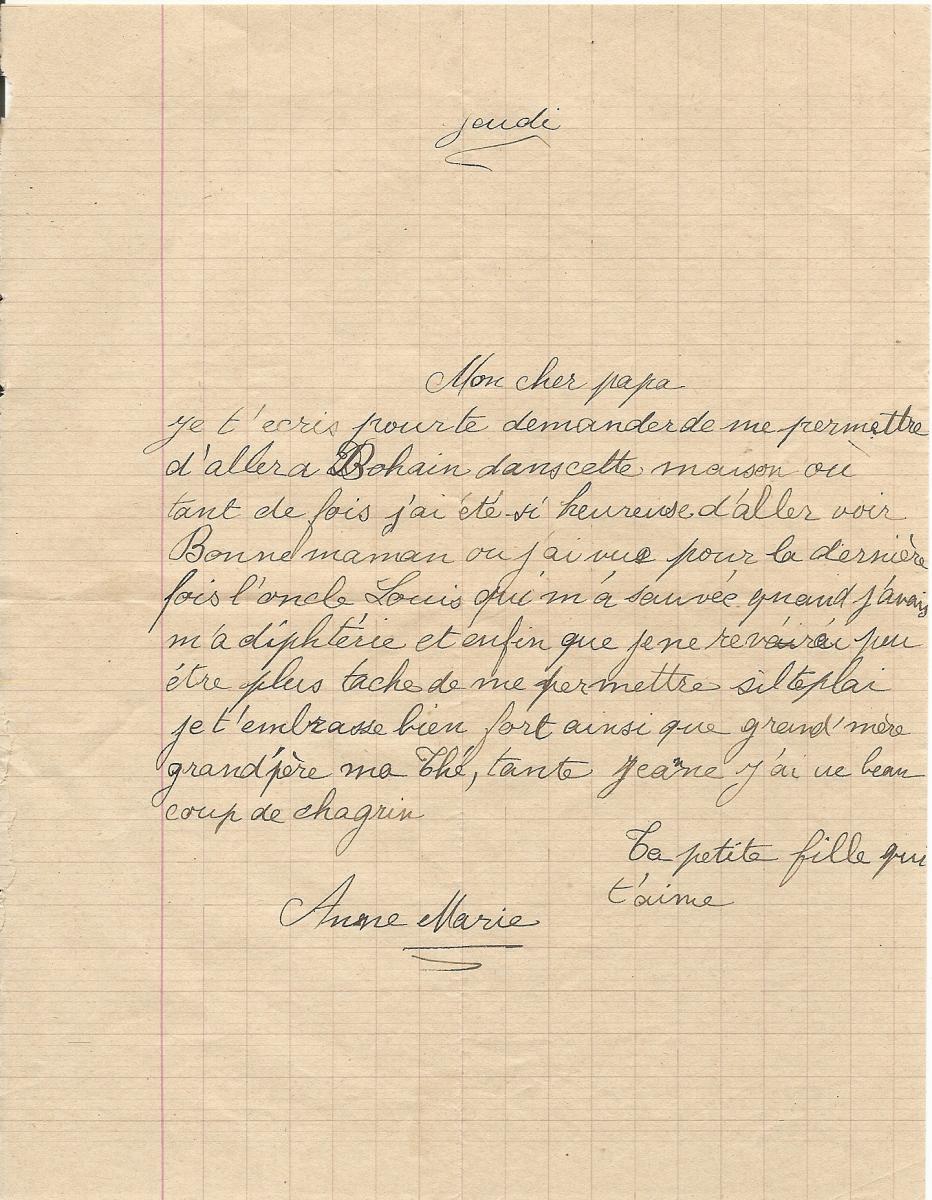 jeudi
Mon cher papa
je t'ecris pourte demanderde me permettre
d'allera Bohain danscette maison ou
tant de fois j'ai été si heureuse d'aller voir
Bonne maman ou j'ai vue pour la dernière
fois l'oncle Louis qui m'a sauvée quand j'avais
m'a diphtérie et enfin que jene revairai peu
être plus tache de me permettre silteplai
je t'embrasse bien fort ainsi que grand'mère
grand'père ma Thé, tante Jeanne j'ai ue beau
coup de chagrin
Ta petite fille qui
t'aime
Anne Marie